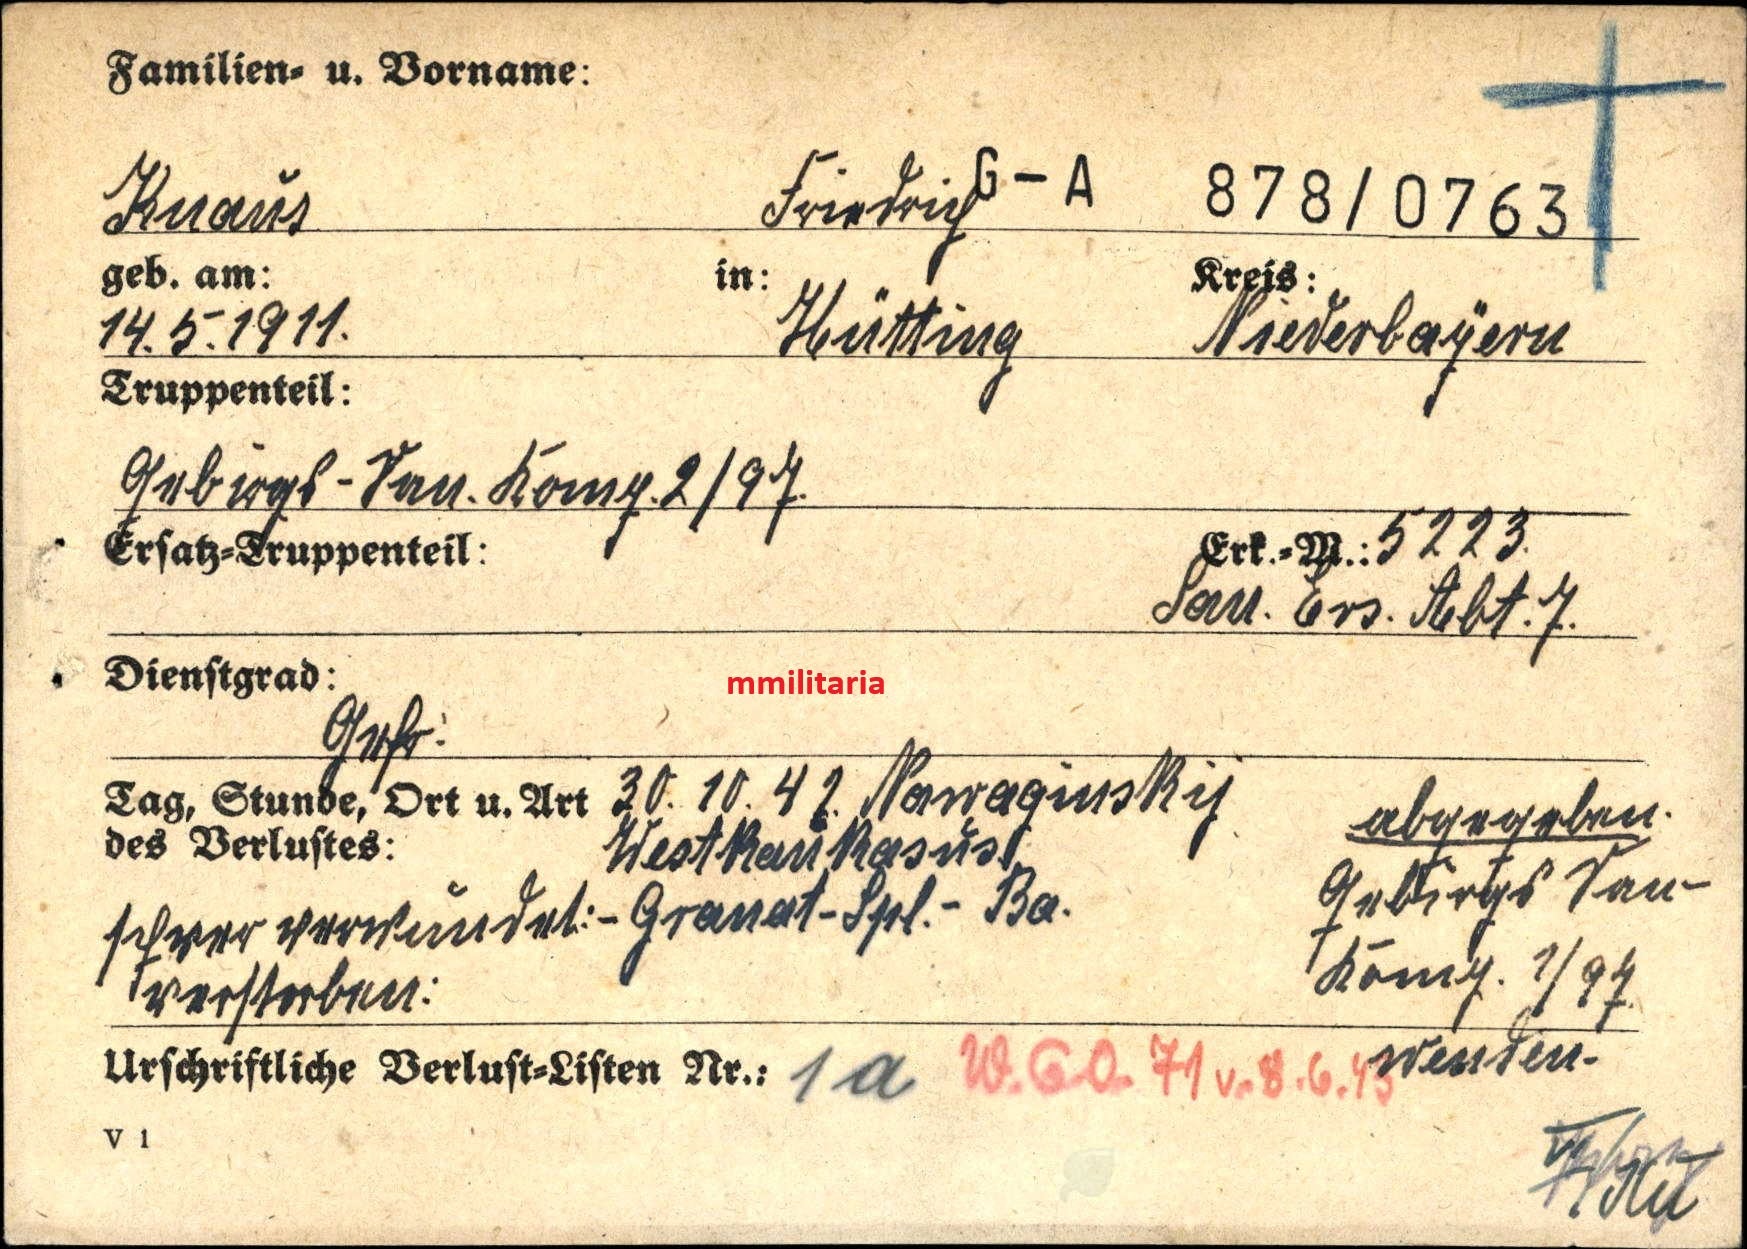 Familien- u. Vorname:
Knaus Friedrich G-A 878/0763
geb. am: in: Kreis:
14.5.1911. Hütting Niederbayern
Truppenteil:
Gebirgs-San. Komp. 2/97.
Ersatz-Truppenteil: Erk.-M.: 5223.
San. Ers. Abt. 7.
Dienstgrad:
mmilitaria
Gefr.
Tag, Stunde, Ort u. Art 30.10.42. Nawaginskij
des Verlustes: Westkaukasus
abgegeben.
schwer verwundet:- Granat-Spl.- Ba.
Gebirgs San-
verstorben:
Komp. 1/97
Urschriftliche Verlust-Listen Nr.: 1a W.G.O. 71 v. 8.6.43
wenden-
V 1